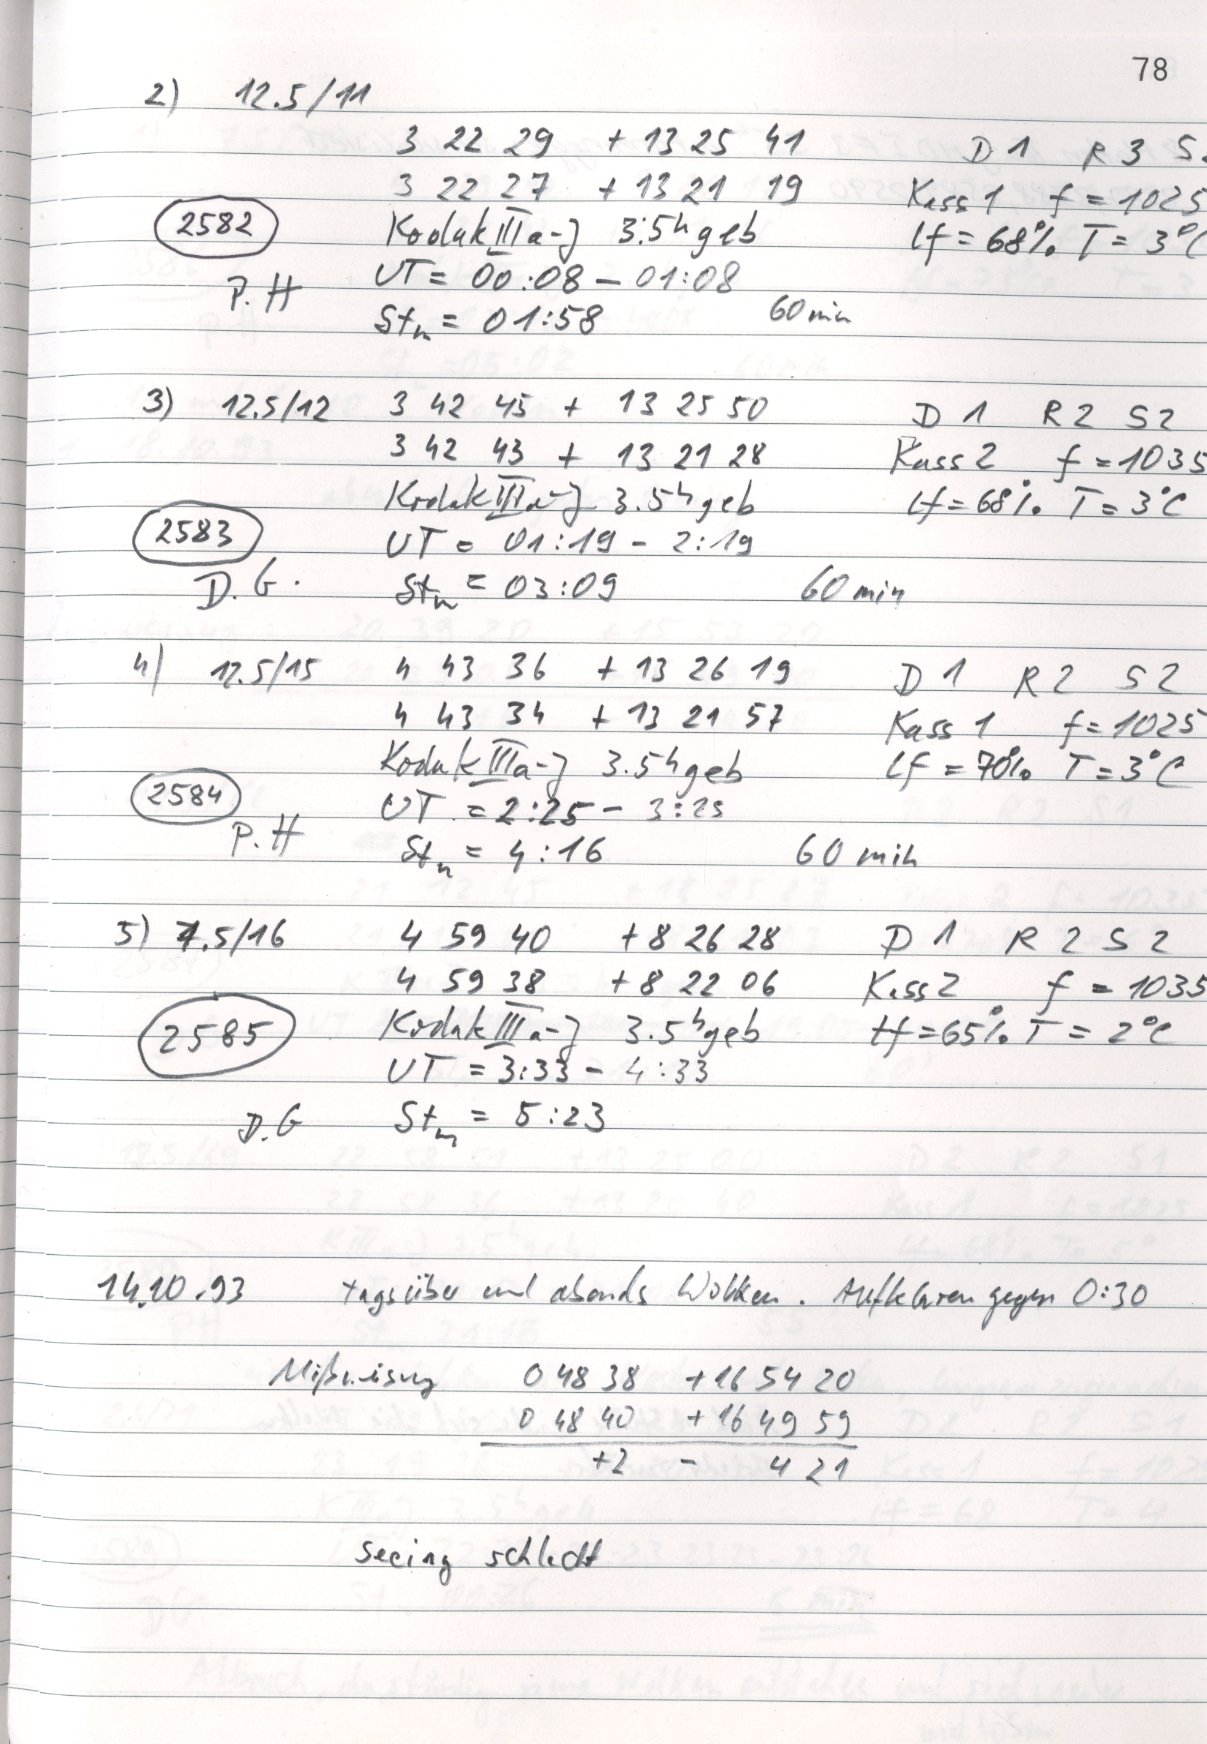 78
2) 12.5/11
3 22 29 + 13 25 41 D 1 R 3 S
3 22 27 + 13 21 19 Kass 1 f = 1025
2582 Kodak IIIa-J 3.5h geb lf = 68% T = 3°C
P.H UT = 00:08 – 01:08
Stw = 01:58 60 min
3) 12.5/12 3 42 45 + 13 25 50 D 1 R 2 S 2
3 42 43 + 13 21 28 Kass 2 f = 1035
Kodak IIIa-J 3.5h geb lf = 68% T = 3°C
2583 UT = 01:19 - 2:19
D.G. Stw = 03:09 60 min
4) 12.5/15 4 43 36 + 13 26 19 D 1 R 2 S 2
4 43 34 + 13 21 57 Kass 1 f = 1025
Kodak IIIa-J 3.5h geb lf = 70% T = 3°C
2584 UT = 2:25 – 3:25
P.H Stw = 4:16 60 min
5) 7.5/16 4 59 40 + 8 26 28 D 1 R 2 S 2
4 59 38 + 8 22 06 Kass 2 f = 1035
2585 Kodak IIIa-J 3.5h geb lf = 65% T = 2°C
UT = 3:33 – 4:33
D.G Stw = 5:23
14.10.93 tagsüber und abends Wolken. Aufklaren gegen 0:30
Mißweisung 0 48 38 + 16 54 20
0 48 40 + 16 49 59
+2 – 4 21
seeing schlecht